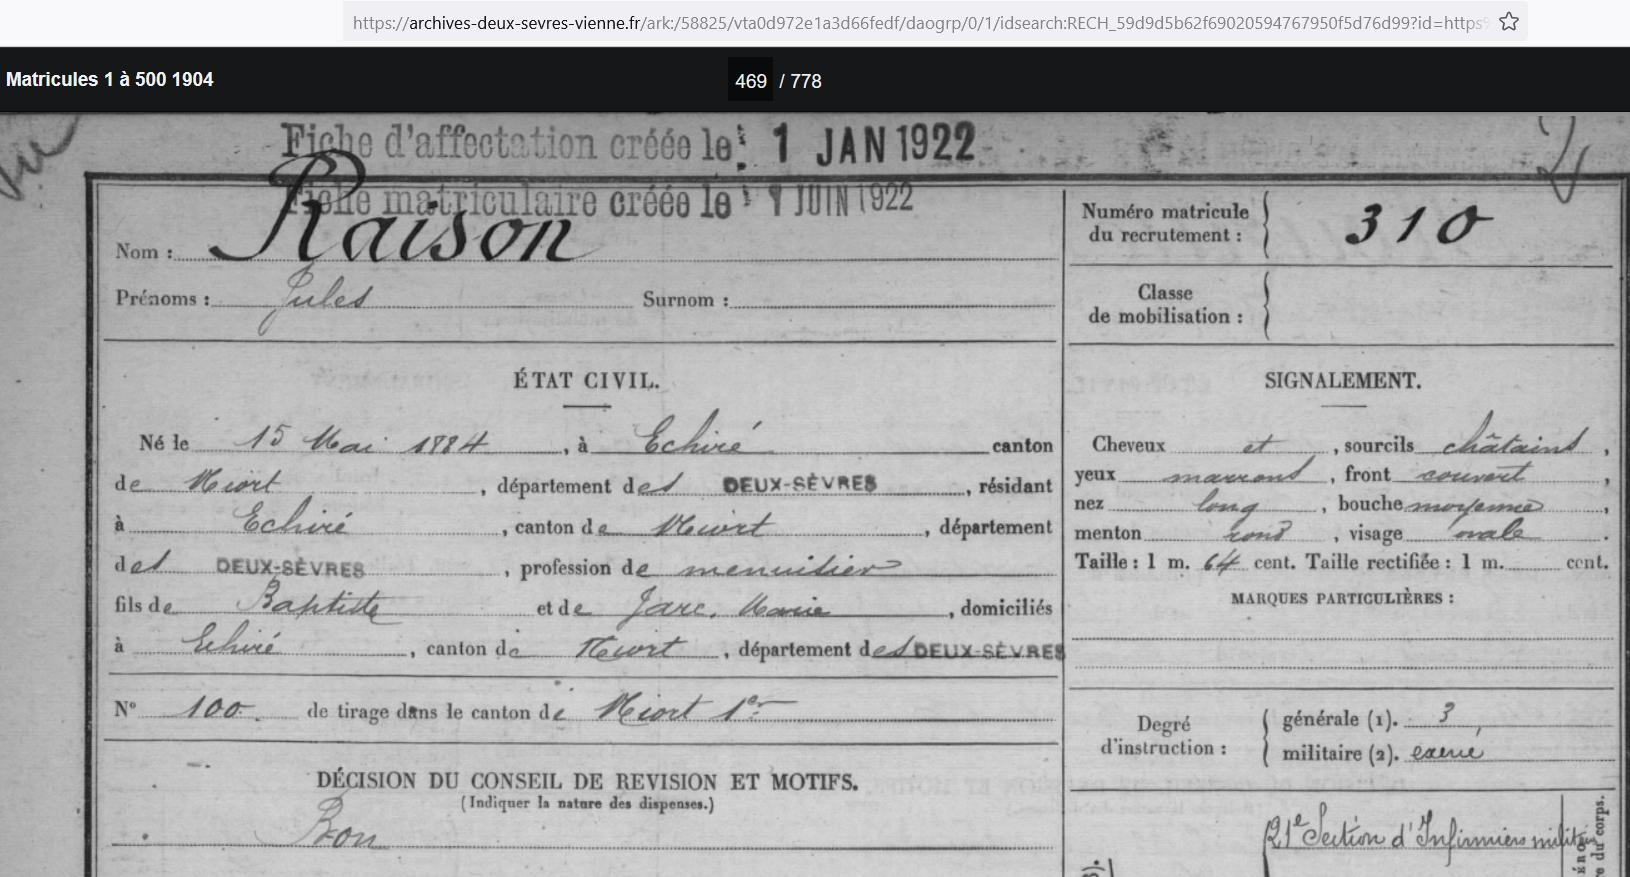 https://archives-deux-sevres-vienne.fr/ark:/58825/vta0d972e1a3d66fedf/daogrp/0/1/idsearch:RECH_59d9d5b62f69020594767950f5d76d99?id=https
Matricules 1 à 500 1904
469 / 778
Fiche d'affectation créée le : 1 JAN 1922
Fiche matriculaire créée le : 1 JUIN 1922
Nom : Raison
Prénoms : Jules Surnom :
Numéro matricule du recrutement : 310
Classe de mobilisation :
ÉTAT CIVIL.
Né le 15 Mai 1884, à Echiré canton
de Niort, département des DEUX-SÈVRES, résidant
à Echiré, canton de Niort, département
des DEUX-SÈVRES, profession de menuisier
fils de Baptiste et de Jarc, Marie, domiciliés
à Echiré, canton de Niort, département des DEUX-SÈVRES
N° 100 de tirage dans le canton de Niort 1er
DÉCISION DU CONSEIL DE REVISION ET MOTIFS.
(Indiquer la nature des dispenses.)
Bon
SIGNALEMENT.
Cheveux et, sourcils châtains,
yeux marrons, front couvert,
nez long, bouche moyenne,
menton rond, visage ovale.
Taille : 1 m. 64 cent. Taille rectifiée : 1 m. cent.
MARQUES PARTICULIÈRES :
Degré d'instruction :
générale (1). 3,
militaire (2). exercé
21e Section d'Infirmiers milit